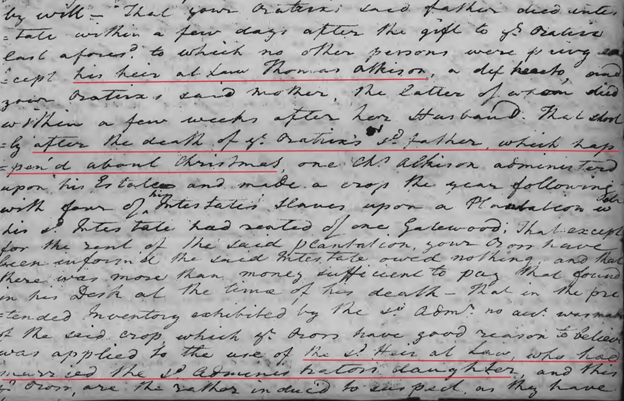 by will – That your Oratrix's said father died intes
=tate within a few days after the gift to yr. Oratrix
last aforesd. to which no other persons were privy ex
=cept his heir at Law Thomas Atkison, a deft. hereto, and
your Oratrix's said mother, the latter of whom died
within a few weeks after her Husband. That short
=ly after the death of yr. Oratrix's sd. father, which hap
=pen'd about Christmas, one Chs. Atkison administered
upon his Estate and made a crop the year following
with four of his Intestate's Slaves upon a Plantation wch.
his sd. Intestate had rented of one Gatewood; That except
for the rent of the said plantation, your Orors have
been inform'd the said Intestate owed nothing, and that
there was more than money sufficient to pay that found
in his Desk at the time of his death – That in the pre
=tended Inventory exhibited by the sd. Admr. no acct. was made
of the said crop which yr. Orors have good reason to believe
was applied to the use of the sd. Heir at Law, who had
married the sd. Administrators daughter, and this
yr. Orors, are the rather induc'd to suspect, as they have